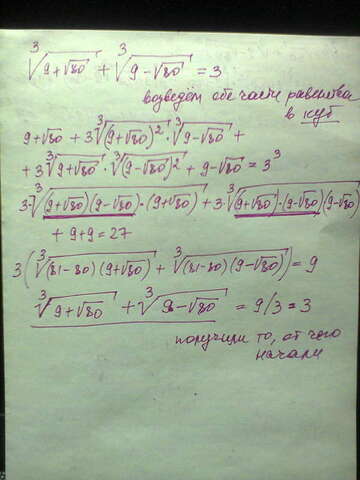 ∛(9+√80) + ∛(9-√80) = 3
возведём обе части равенства
в куб
9+√80 + 3∛(9+√80)² · ∛(9-√80) +
+ 3∛(9+√80) · ∛(9-√80)² + 9-√80 = 3³
3·∛((9+√80)(9-√80)·(9+√80)) + 3·∛((9+√80)·(9-√80)(9-√80))
+ 9+9=27
3(∛((81-80)(9+√80)) + ∛((81-80)(9-√80))) = 9
∛(9+√80) + ∛(9-√80) = 9/3 = 3
получили то, от чего
начали